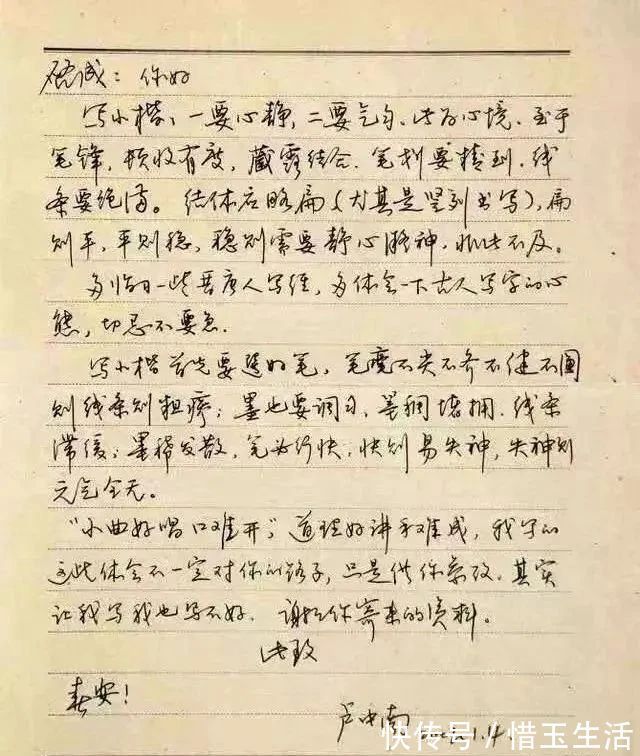 你好
写小楷，一要心静，二要气匀，此为心境。至于
笔锋，顿收有度，藏露结合，笔划要精到，线
条要饱满。结体应略扁（尤其是竖列书写），扁
则平，平则稳，稳则需要静心凝神，非此不及。
多临习一些晋唐人写经，多体会一下古人写字的心
态，切忌不要急。
写小楷首先要选好笔，笔不尖不齐不健不圆
则线条则粗疏；墨也要调匀，墨稠堵拥，线条
滞缓；墨稀发散，笔必行快，快则易失神，失神则
元气全无。
“小曲好唱口难开”，道理好讲手难成，我写的
这些体会不一定对你的路子，只是供你参考。其实
让我写我也写不好。谢谢你寄来的资料。
此致
春安！
卢中南
快传号/惜玉生活